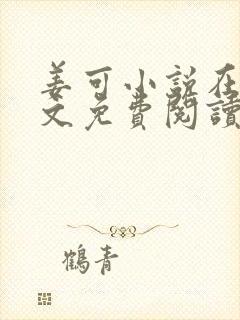 姜可小说在
文免費閱讀
鶴青